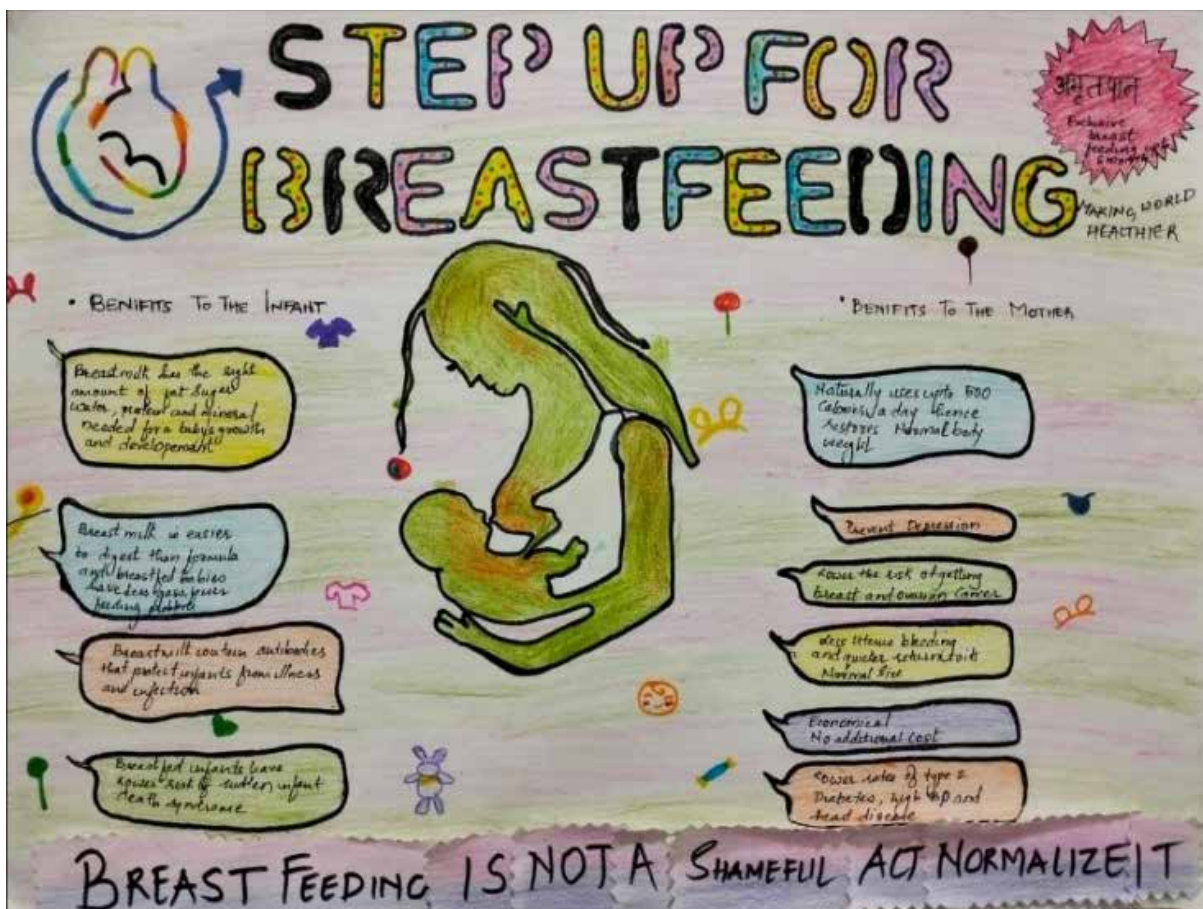 STEP UP FOR
BREASTFEEDING
अमृतपान
Exclusive
breast
feeding
MAKING WORLD
HEALTHIER
• BENIFITS TO THE INFANT
Breastmilk has the right
amount of fat sugar
water, protein and mineral
needed for a baby's growth
and development
Breast milk is easier
to digest than formula
and breastfed babies
have less gass, fewer
feeding
Breastmilk contain antibodies
that protect infants from illness
and infection
Breastfed infants have
lower risk of sudden infant
death syndrome
• BENIFITS TO THE MOTHER
Naturally uses upto 500
Calories a day hence
restores Normal body
weight
Prevent Depression
Lower the risk of getting
breast and ovarian cancer
less uterine bleeding
and quicker return to its
Normal size
Economical
No additional cost
Lower rates of type 2
Diabetes, high BP and
disease
BREAST FEEDING IS NOT A SHAMEFUL ACT NORMALIZE IT